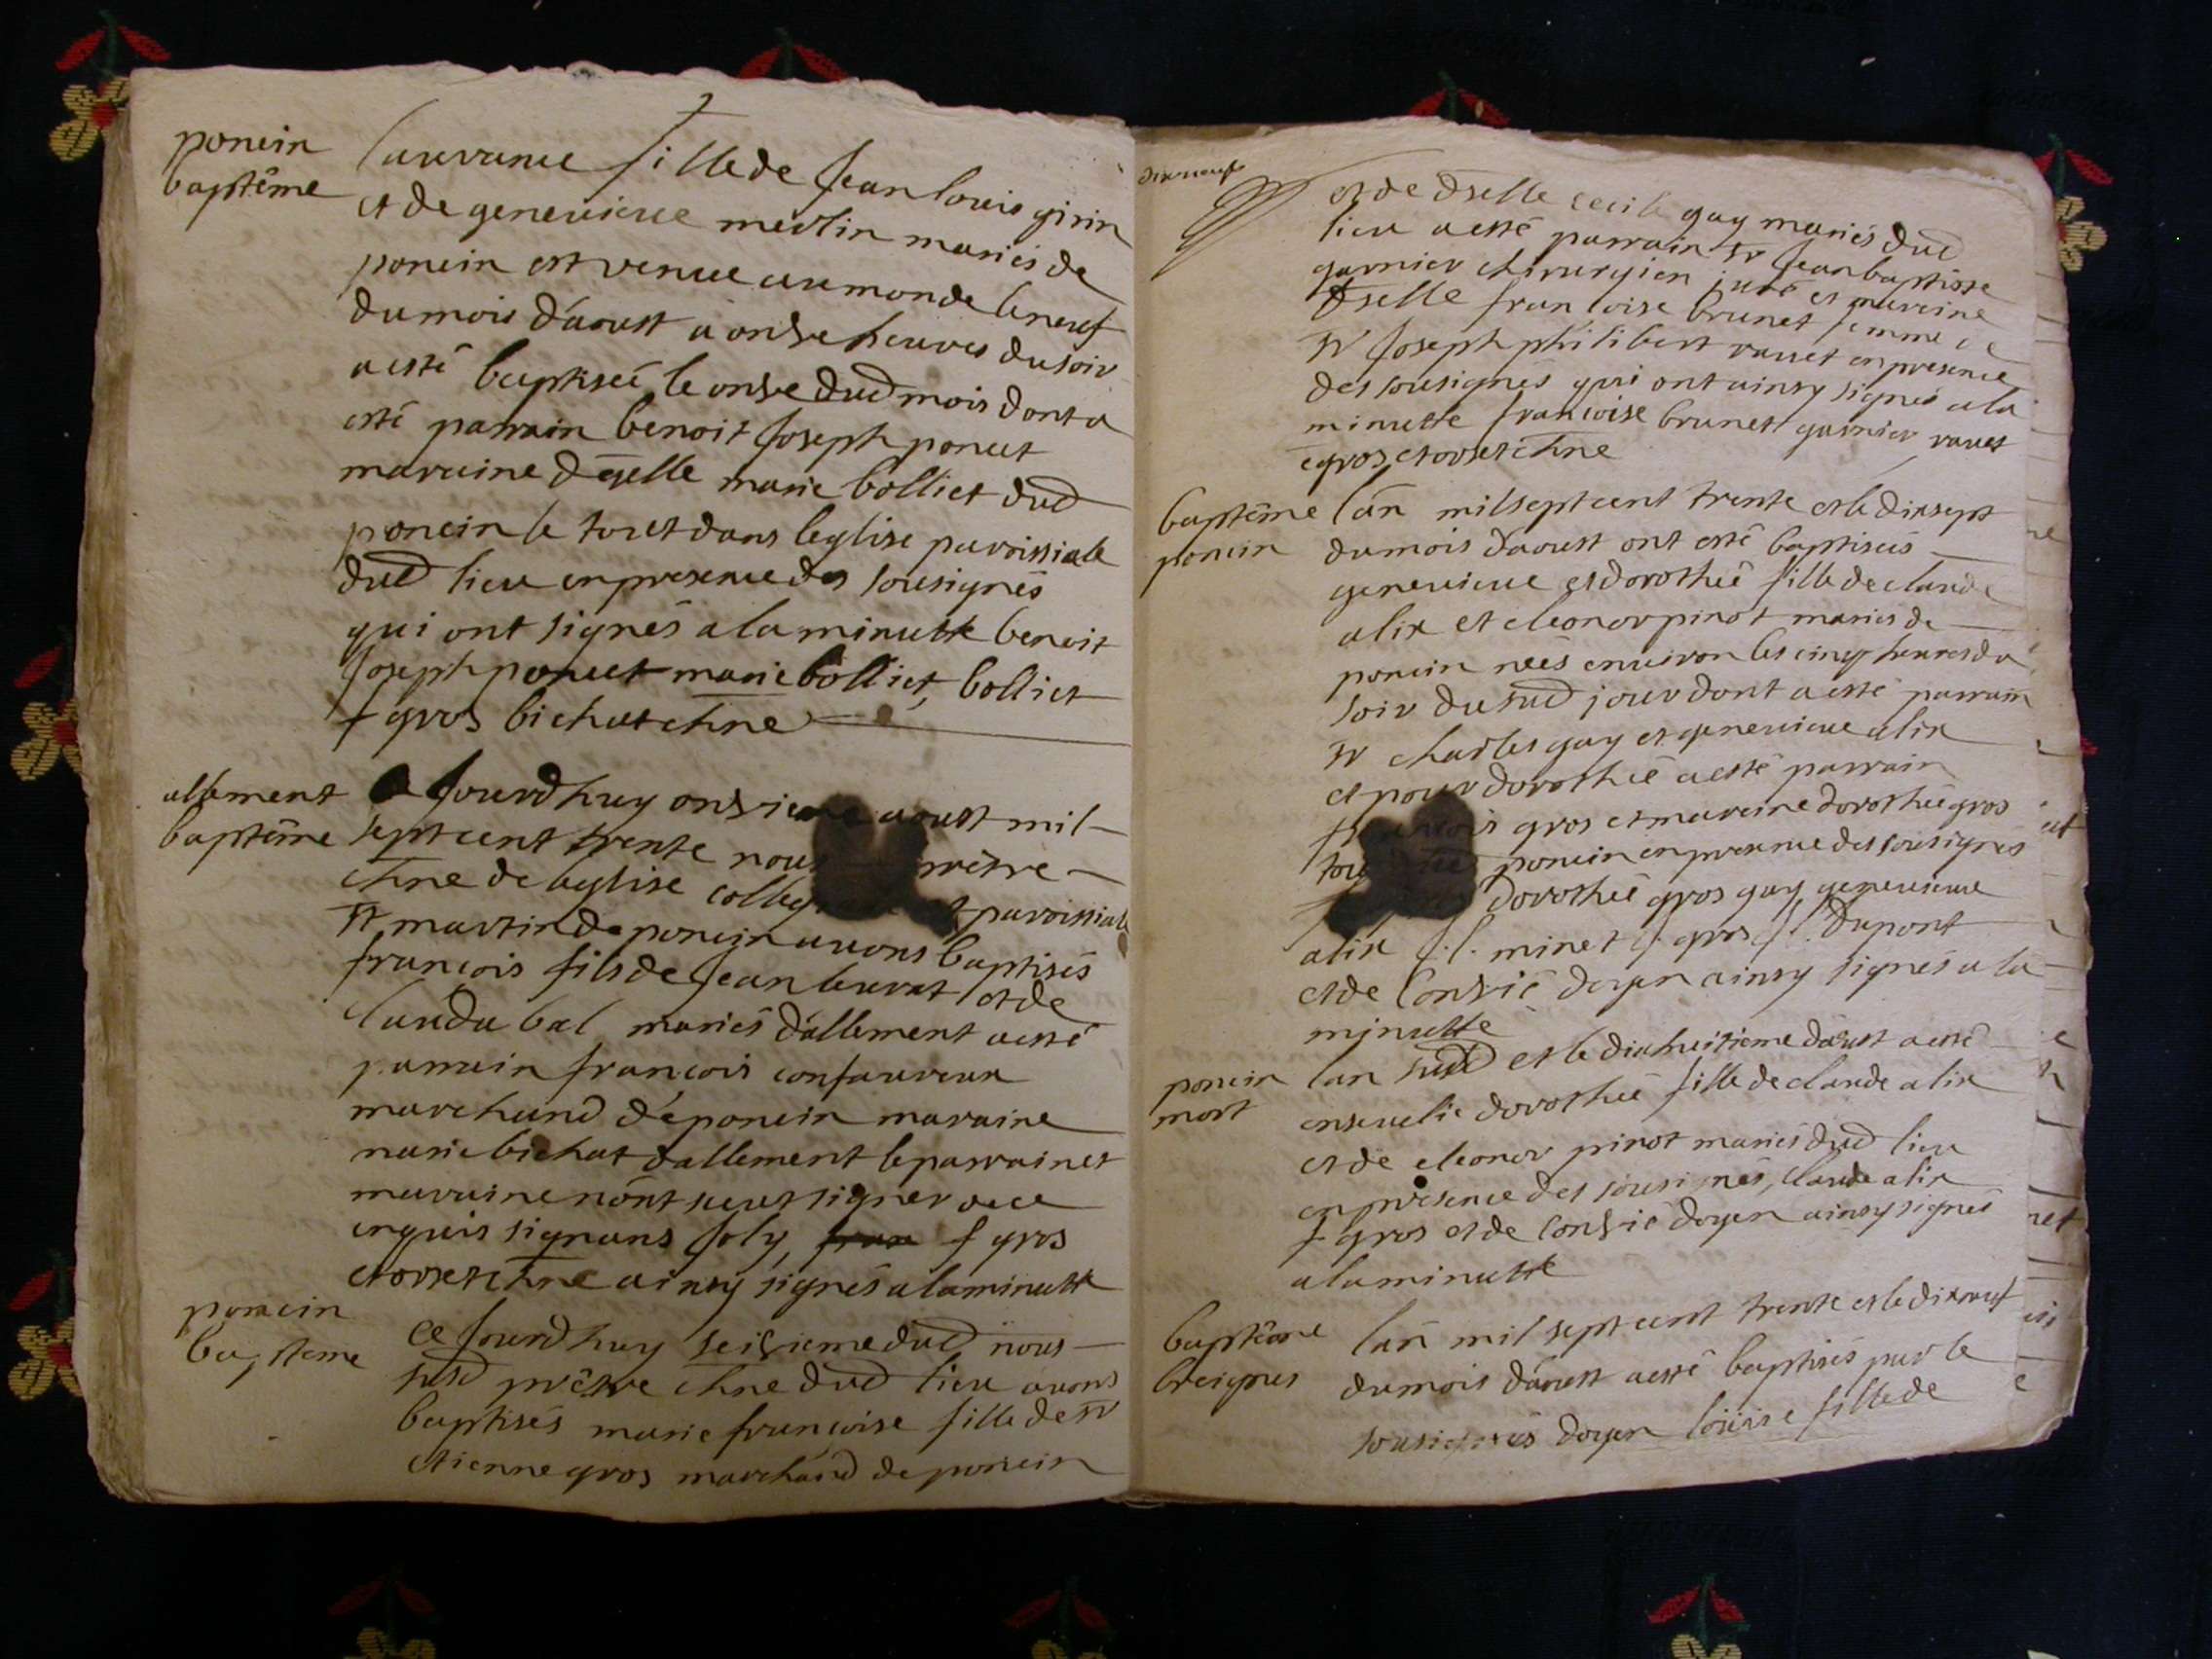 poncin
baptême
laurance fille de Jean louis girin
et de genevieve merlin mariés de
poncin est venue au monde le neuf
du mois d'aoust a onse heures du soir
a esté baptiseé le onse dud mois dont a
esté parrain benoit Joseph poncet
maraine d elle marie bolliet dud
poncin le tout dans leglise paroissiale
dud lieu en presence des sousignés
qui ont signés a la minutte benoit
Joseph poncet marie bolliet, bolliet
f gros bichat chne
allement
baptême
Jourd huy onsieme aoust mil
sept cent trente nous prêtre
chne de leglise paroissiale
st martin de poncin avons baptisés
françois fils de Jean levrat et de
clauda bal mariés d'allement a esté
parrain françois
marchand de poncin maraine
marie bichat d'allement le parrain et
maraine n'ont sceut signer de ce
enquis signans Joly, f gros
chne ainsy signés a la minutte
poncin
bapteme
ce Jourd huy seisieme dud nous
susd prêtre chne dud lieu avons
baptisés marie françoise fille de sr
etienne gros marchand de poncin
dix neuf
et de dselle cecile guy mariés dud
lieu a esté parrain sr Jean baptiste
garnier chirurgien juré et maraine
dselle françoise brunet femme de
sr Joseph philibert ravet en presence
des sousignés qui ont ainsy signés a la
minutte françoise brunet garnier ravet
gros chne
baptême
poncin
l'an mil sept cent trente et le dixsept
du mois d'aoust ont esté baptisés
genevieve et dorothée fille de claude
alix et eleonor pinot mariés de
poncin neés environ les cinq heures du
soir du sud jour dont a esté parrain
sr charles guy et genevieve alix
et pour dorothée a esté parrain
gros et maraine dorothée gros
poncin en presence des sousignés
dorothée gros guy genevieve
alix f. l. minet f. gros f. l. dupont
et de Consié doyen ainsy signés a la
minutte
poncin
mort
l'an susd et le dixhuitieme d'aoust a esté
ensevelie dorothée fille de claude alix
et de eleonor pinot mariés dud lieu
en presence des sousignés, claude alix
f gros et de Consié doyen ainsy signés
a la minutte
baptême
breignes
l'an mil sept cent trente et le dixneuf
du mois d'aoust a esté baptisés par le
sousignés doyen loüise fille de